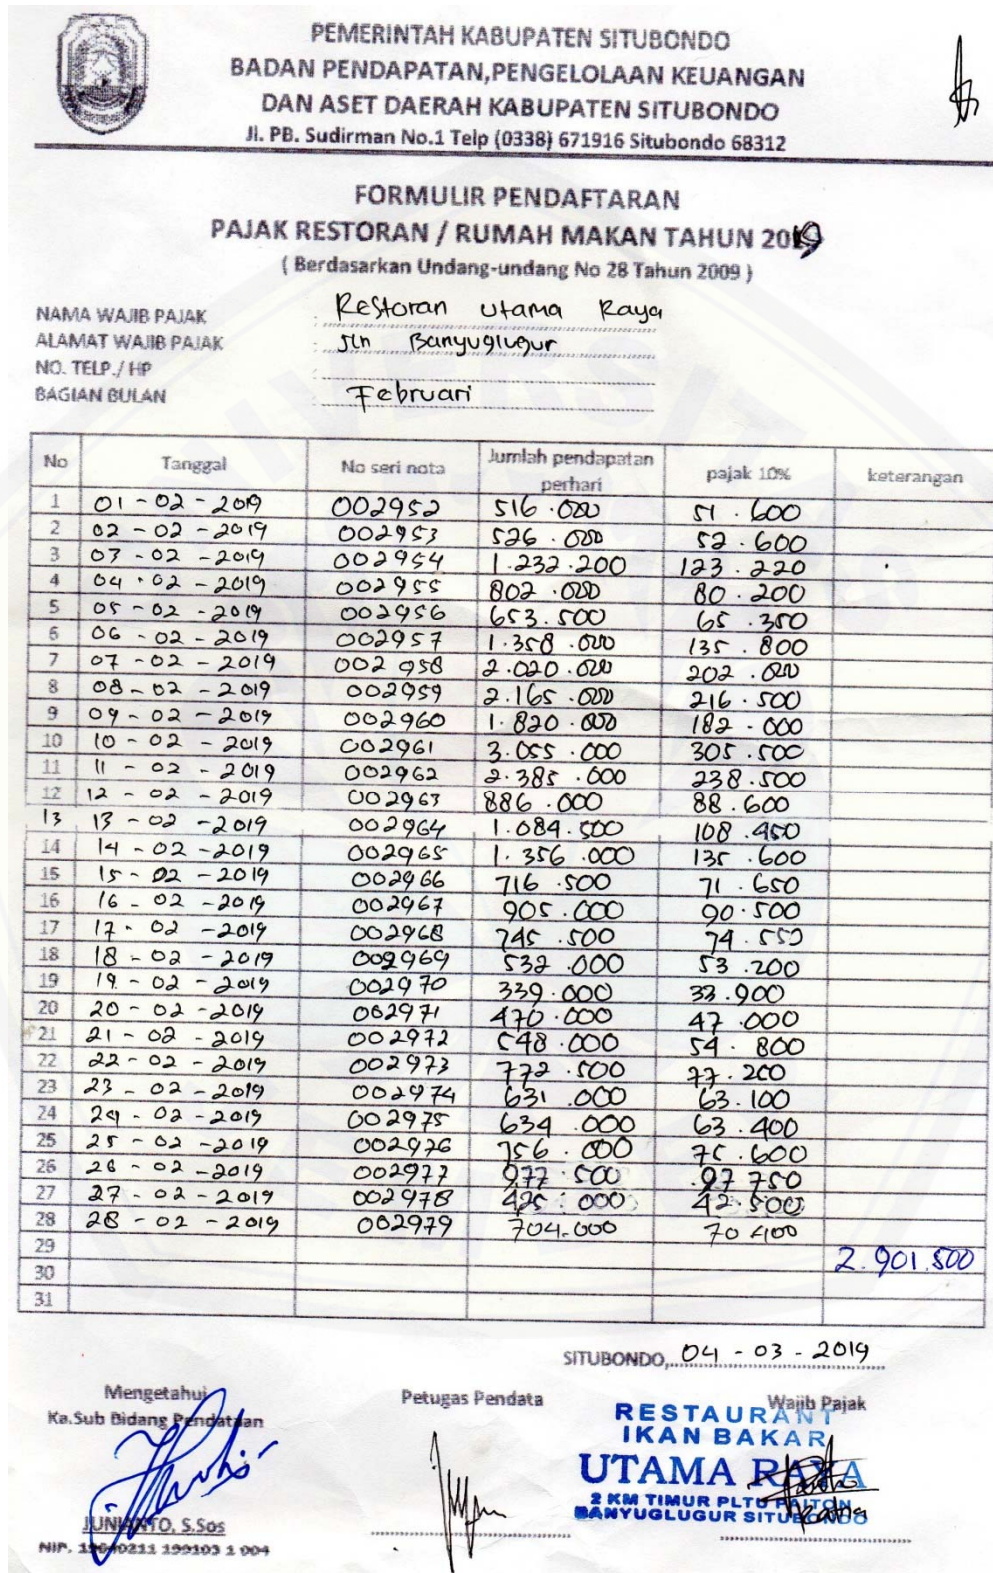 PEMERINTAH KABUPATEN SITUBONDO
BADAN PENDAPATAN,PENGELOLAAN KEUANGAN
DAN ASET DAERAH KABUPATEN SITUBONDO
Jl. PB. Sudirman No.1 Telp (0338) 671916 Situbondo 68312
FORMULIR PENDAFTARAN
PAJAK RESTORAN / RUMAH MAKAN TAHUN 2019
( Berdasarkan Undang-undang No 28 Tahun 2009 )
NAMA WAJIB PAJAK : Restoran Utama Raya
ALAMAT WAJIB PAJAK : Jln Banyuglugur
NO. TELP./ HP :
BAGIAN BULAN : Februari
No Tanggal No seri nota Jumlah pendapatan perhari pajak 10% keterangan
1 01 - 02 - 2019 002952 516.000 51.600
2 02 - 02 - 2019 002953 526.000 52.600
3 03 - 02 - 2019 002954 1.232.200 123.220
4 04 - 02 - 2019 002955 802.000 80.200
5 05 - 02 - 2019 002956 653.500 65.350
6 06 - 02 - 2019 002957 1.358.000 135.800
7 07 - 02 - 2019 002958 2.020.000 202.000
8 08 - 02 - 2019 002959 2.165.000 216.500
9 09 - 02 - 2019 002960 1.820.000 182.000
10 10 - 02 - 2019 002961 3.055.000 305.500
11 11 - 02 - 2019 002962 2.385.000 238.500
12 12 - 02 - 2019 002963 886.000 88.600
13 13 - 02 - 2019 002964 1.084.500 108.450
14 14 - 02 - 2019 002965 1.356.000 135.600
15 15 - 02 - 2019 002966 716.500 71.650
16 16 - 02 - 2019 002967 905.000 90.500
17 17 - 02 - 2019 002968 745.500 74.550
18 18 - 02 - 2019 002969 532.000 53.200
19 19 - 02 - 2019 002970 339.000 33.900
20 20 - 02 - 2019 002971 470.000 47.000
21 21 - 02 - 2019 002972 548.000 54.800
22 22 - 02 - 2019 002973 772.500 77.200
23 23 - 02 - 2019 002974 631.000 63.100
24 24 - 02 - 2019 002975 634.000 63.400
25 25 - 02 - 2019 002976 756.000 75.600
26 26 - 02 - 2019 002977 977.500 97.750
27 27 - 02 - 2019 002978 425.000 42.500
28 28 - 02 - 2019 002979 704.000 70.400
29 2.901.500
30
31
SITUBONDO, 04 - 03 - 2019
Mengetahui Petugas Pendata Wajib Pajak
Ka.Sub Bidang Pendataan
RESTAURANT
IKAN BAKAR
UTAMA RAYA
2 KM TIMUR PLTU PAITON
BANYUGLUGUR SITUBONDO
Ratna
JUNIANTO, S.Sos
NIP. 19640211 199103 1 004